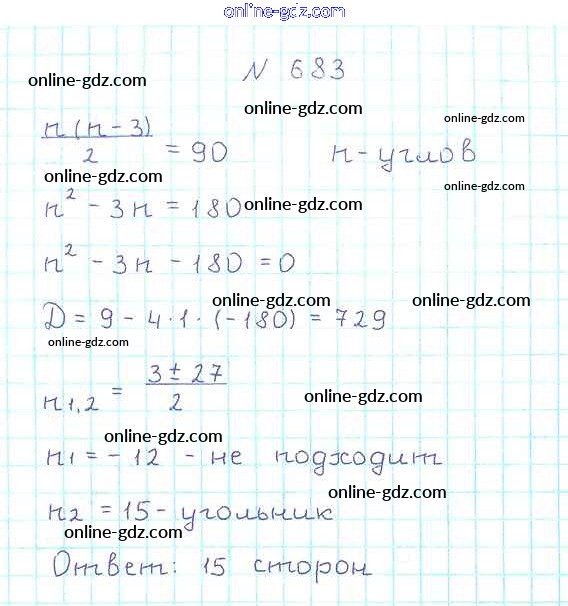 online-gdz.com
N 683
online-gdz.com
online-gdz.com
online-gdz.com
n(n-3)/2 = 90 n-углов
online-gdz.com
online-gdz.com
online-gdz.com
n² - 3n = 180
n² - 3n - 180 = 0
online-gdz.com
online-gdz.com
D = 9 - 4·1·(-180) = 729
online-gdz.com
n1,2 = (3 ± 27)/2
online-gdz.com
online-gdz.com
n1 = -12 - не подходит
online-gdz.com
n2 = 15 - угольник
online-gdz.com
Ответ: 15 сторон